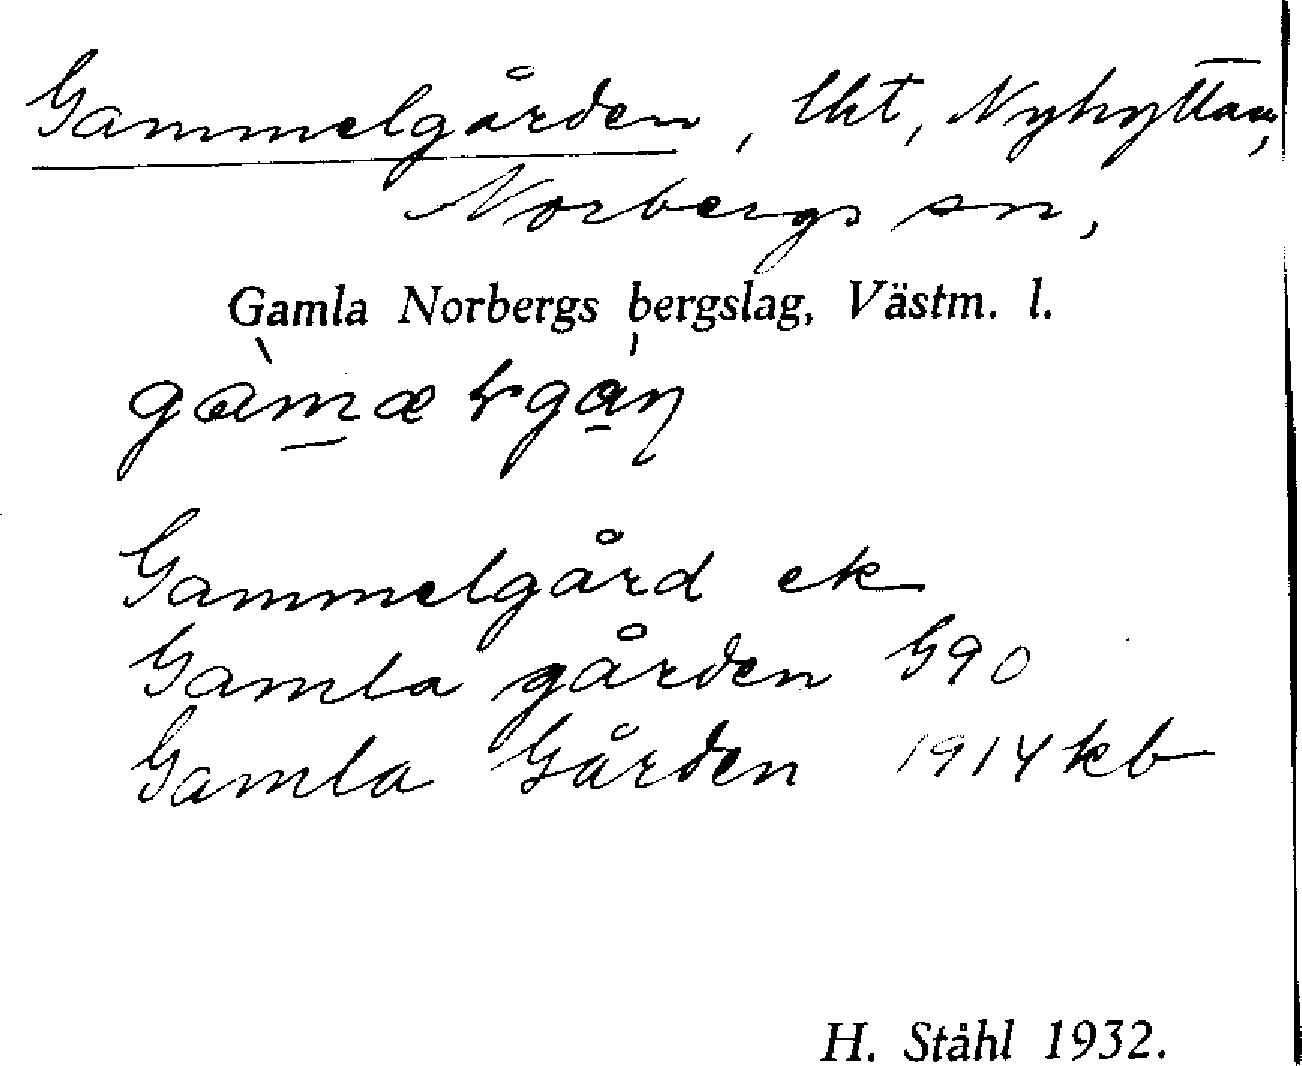 Gammelgården, lht, Nyhyttan,
Norbergs sn,
Gamla Norbergs bergslag, Västm. l.
Gammelgård ek
Gamla gården G90
Gamla Gården 1914 kb
H. Ståhl 1932.